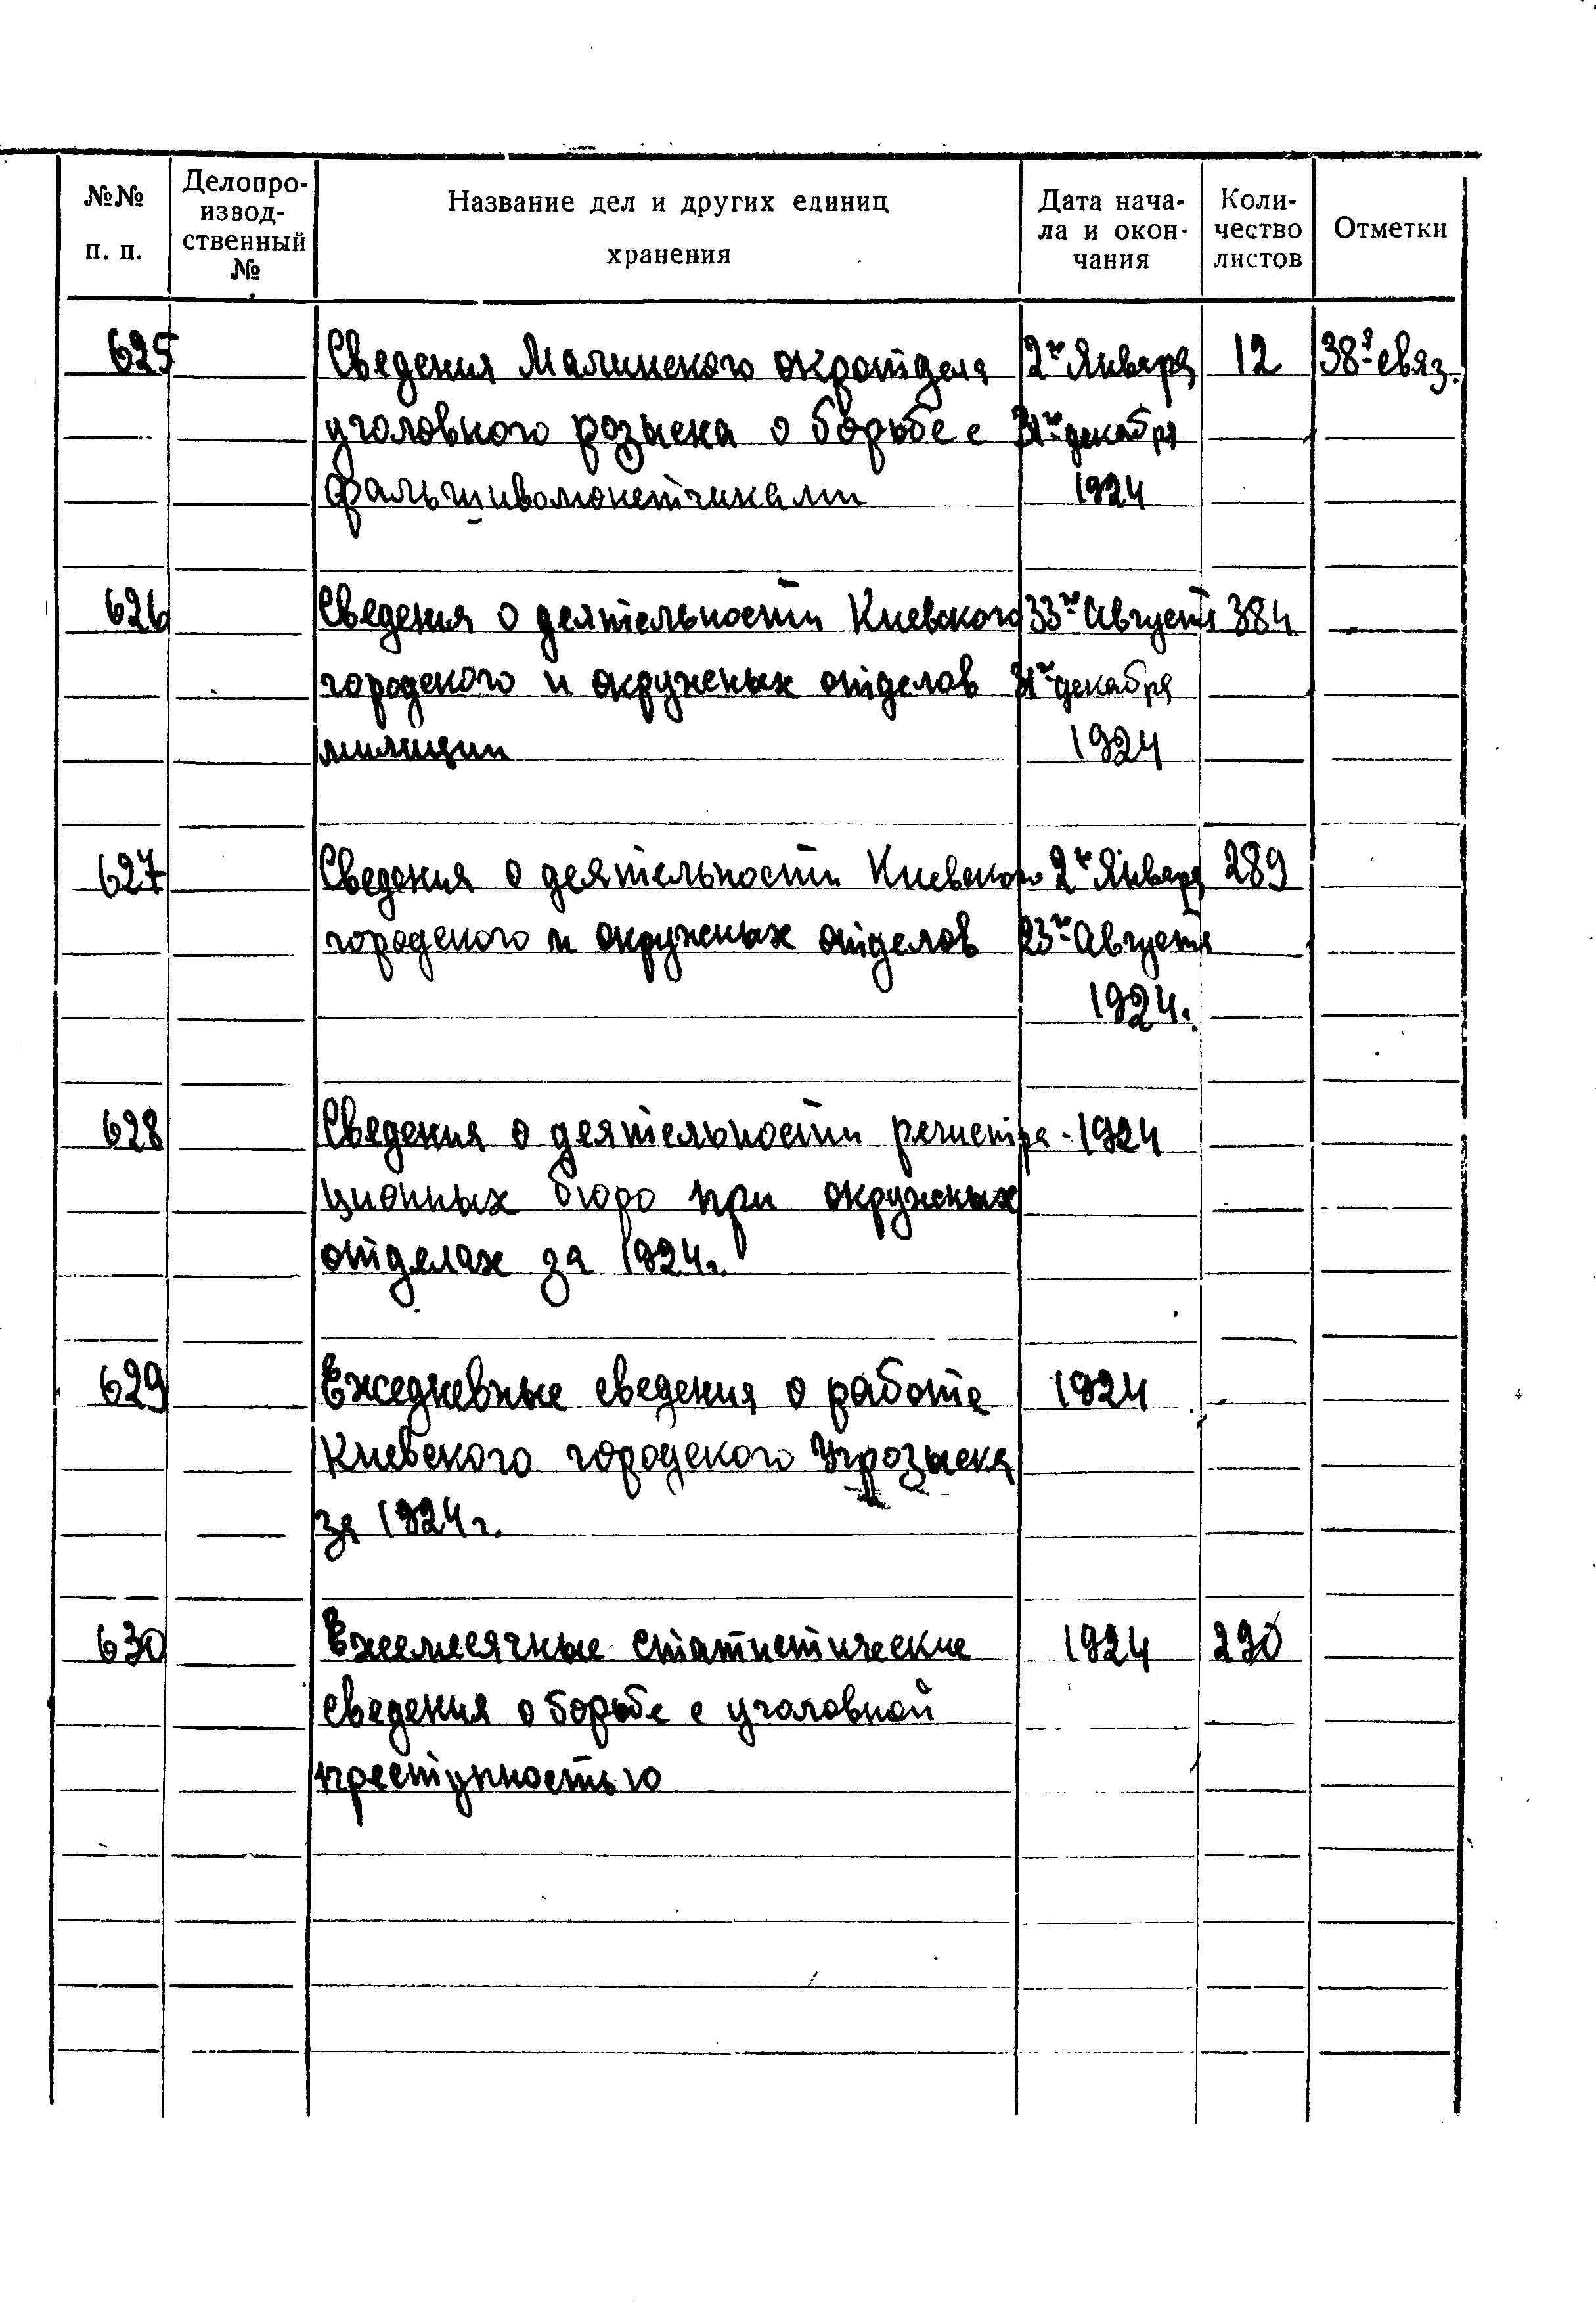 №№ п. п.
Делопро-
извод-
ственный
№
Название дел и других единиц
хранения
Дата нача-
ла и окон-
чания
Коли-
чество
листов
Отметки
625 Сведения Малинского окротдела 2го Января 12 38я связ.
уголовного розыска о борьбе с 31го декабря
фальшивомонетчиками 1924
626 Сведения о деятельности Киевского 33го Августа 384
городского и окружных отделов 31го декабря
милиции 1924
627 Сведения о деятельности Киевского 2го Января 289
городского и окружных отделов 23го Августа
1924.
628 Сведения о деятельности регистра- 1924
ционных бюро при окружных
отделах за 1924г.
629 Ежедневные сведения о работе 1924
Киевского городского Угрозыска
за 1924г.
630 Ежемесячные статистические 1924 290
сведения о борьбе с уголовной
преступностью